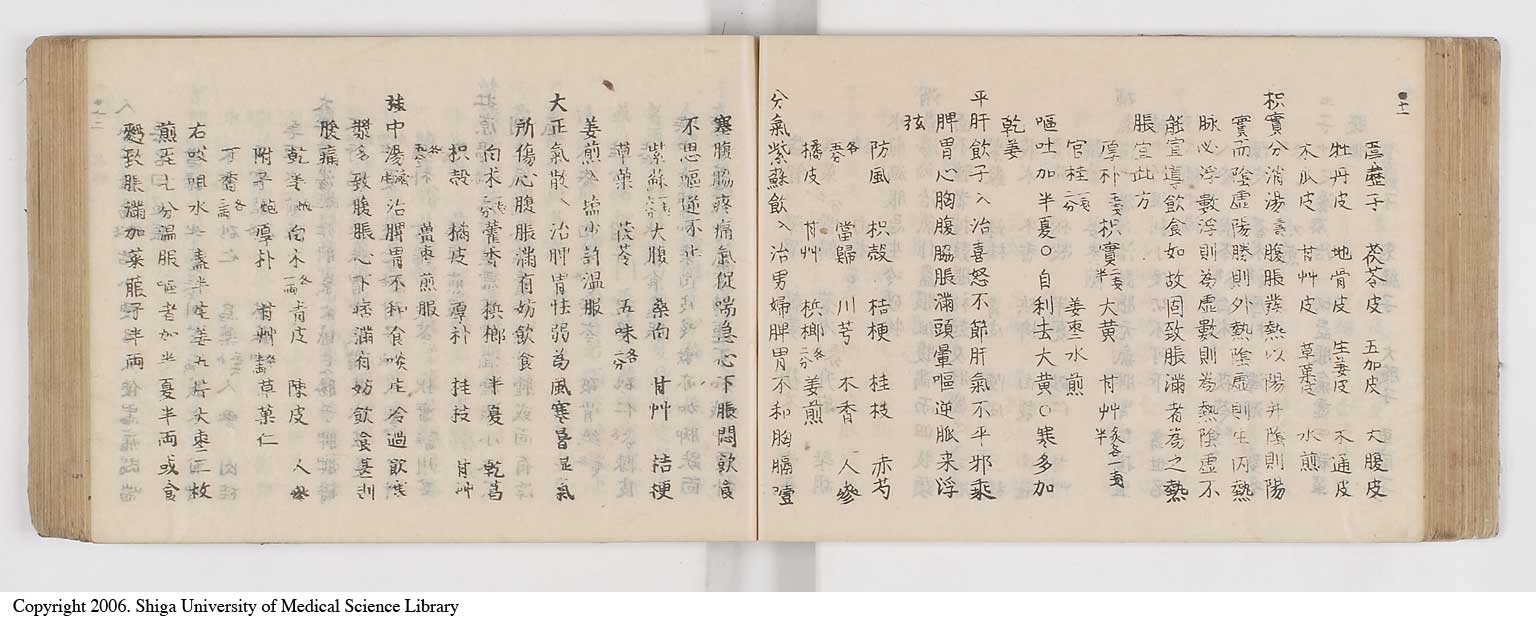 葶藶子 茯苓皮 五加皮 大腹皮
牡丹皮 地骨皮 生姜皮 木通皮
木瓜皮 甘艸皮 草菓皮 水煎
枳實分消湯 腹脹發熱以陽升陰則陽
實而陰虛陽勝則外熱陰虛則生内熱
脉必浮數浮則為虛數則為熱陰虛不
能宣導飲食如故因致脹滿者為之熱
脹宜此方
厚朴 枳實 大黄 甘艸
官桂 姜棗水煎
嘔吐加半夏○自利去大黄○寒多加
乾姜
平肝飲子 治喜怒不節肝氣不平邪乘
脾胃心胸腹脇脹滿頭暈嘔逆脈来浮
弦
防風 枳殻 桔梗 桂枝 赤芍
當歸 川芎 木香 人參
橘皮 甘艸 梹榔 姜煎
分氣紫蘇飲 治男婦脾胃不和胸膈噎
塞腹脇疼痛氣促喘急心下脹悶飲食
不思嘔逆不止
紫蘇 大腹 桑白 甘艸 桔梗
草菓 茯苓 五味
姜煎入塩少許温服
大正氣散 治脾胃怯弱為風寒暑湿氣
所傷心腹脹滿有妨飲食
白朮 藿香 梹榔 半夏 乾葛
枳殻 橘皮 厚朴 桂枝 甘艸
薑棗煎服
中湯 治脾胃不和食啖生冷過飲寒
漿多致腹脹心下痞滿有妨飲食甚則
腹痛
乾姜 白朮 青皮 陳皮 人參
附子 厚朴 甘艸 草菓仁
丁香
右㕮咀水一盞半生姜五片大棗二枚
煎至七分温服嘔者加半夏半両或食
麪致脹滿加萊菔子半両
Copyright 2006. Shiga University of Medical Science Library